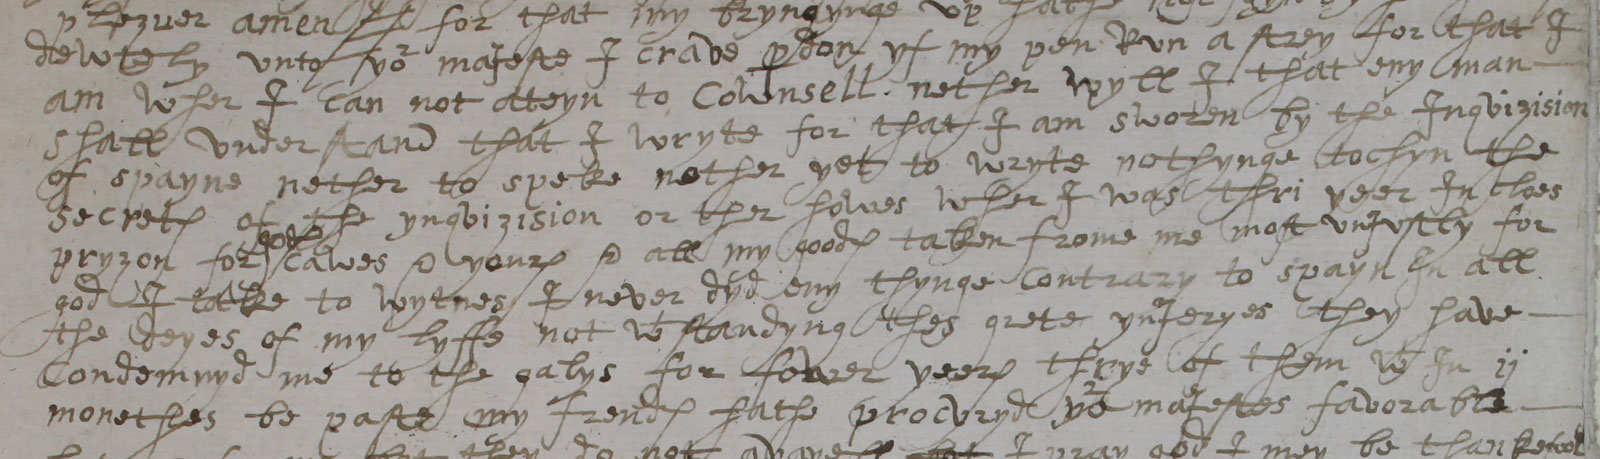 prezver amen & for that my bryngynge vp hathe
dewtely vnto yor majeste I crave pdon yf my pen Rvn a strey for that I
am wher I can not ateyn to Cownsell. nether wyll I that eny man
shall vnderstand that I wryte for that I am sworen by the Inqvizision
of spayne nether to speke nether yet to wryte nothynge tochyn the
secretes of the ynqvizision or ther howes wher I was thri yeer In cloes
pryzon for godes cawes & yours & all my goodes taken frome me most vnjvstly for
god I take to wytnes I never dyd eny thynge contrary to spayn In all
the deyes of my lyffe not wtstandyng thes grete ynjeryes they have
Condemnyd me to the galys for fower yeeres thrye of them wt In ij
monethes be paste my frendes hathe procvryd yor majestes favorable
they do not I pray god I mey be thankefvl